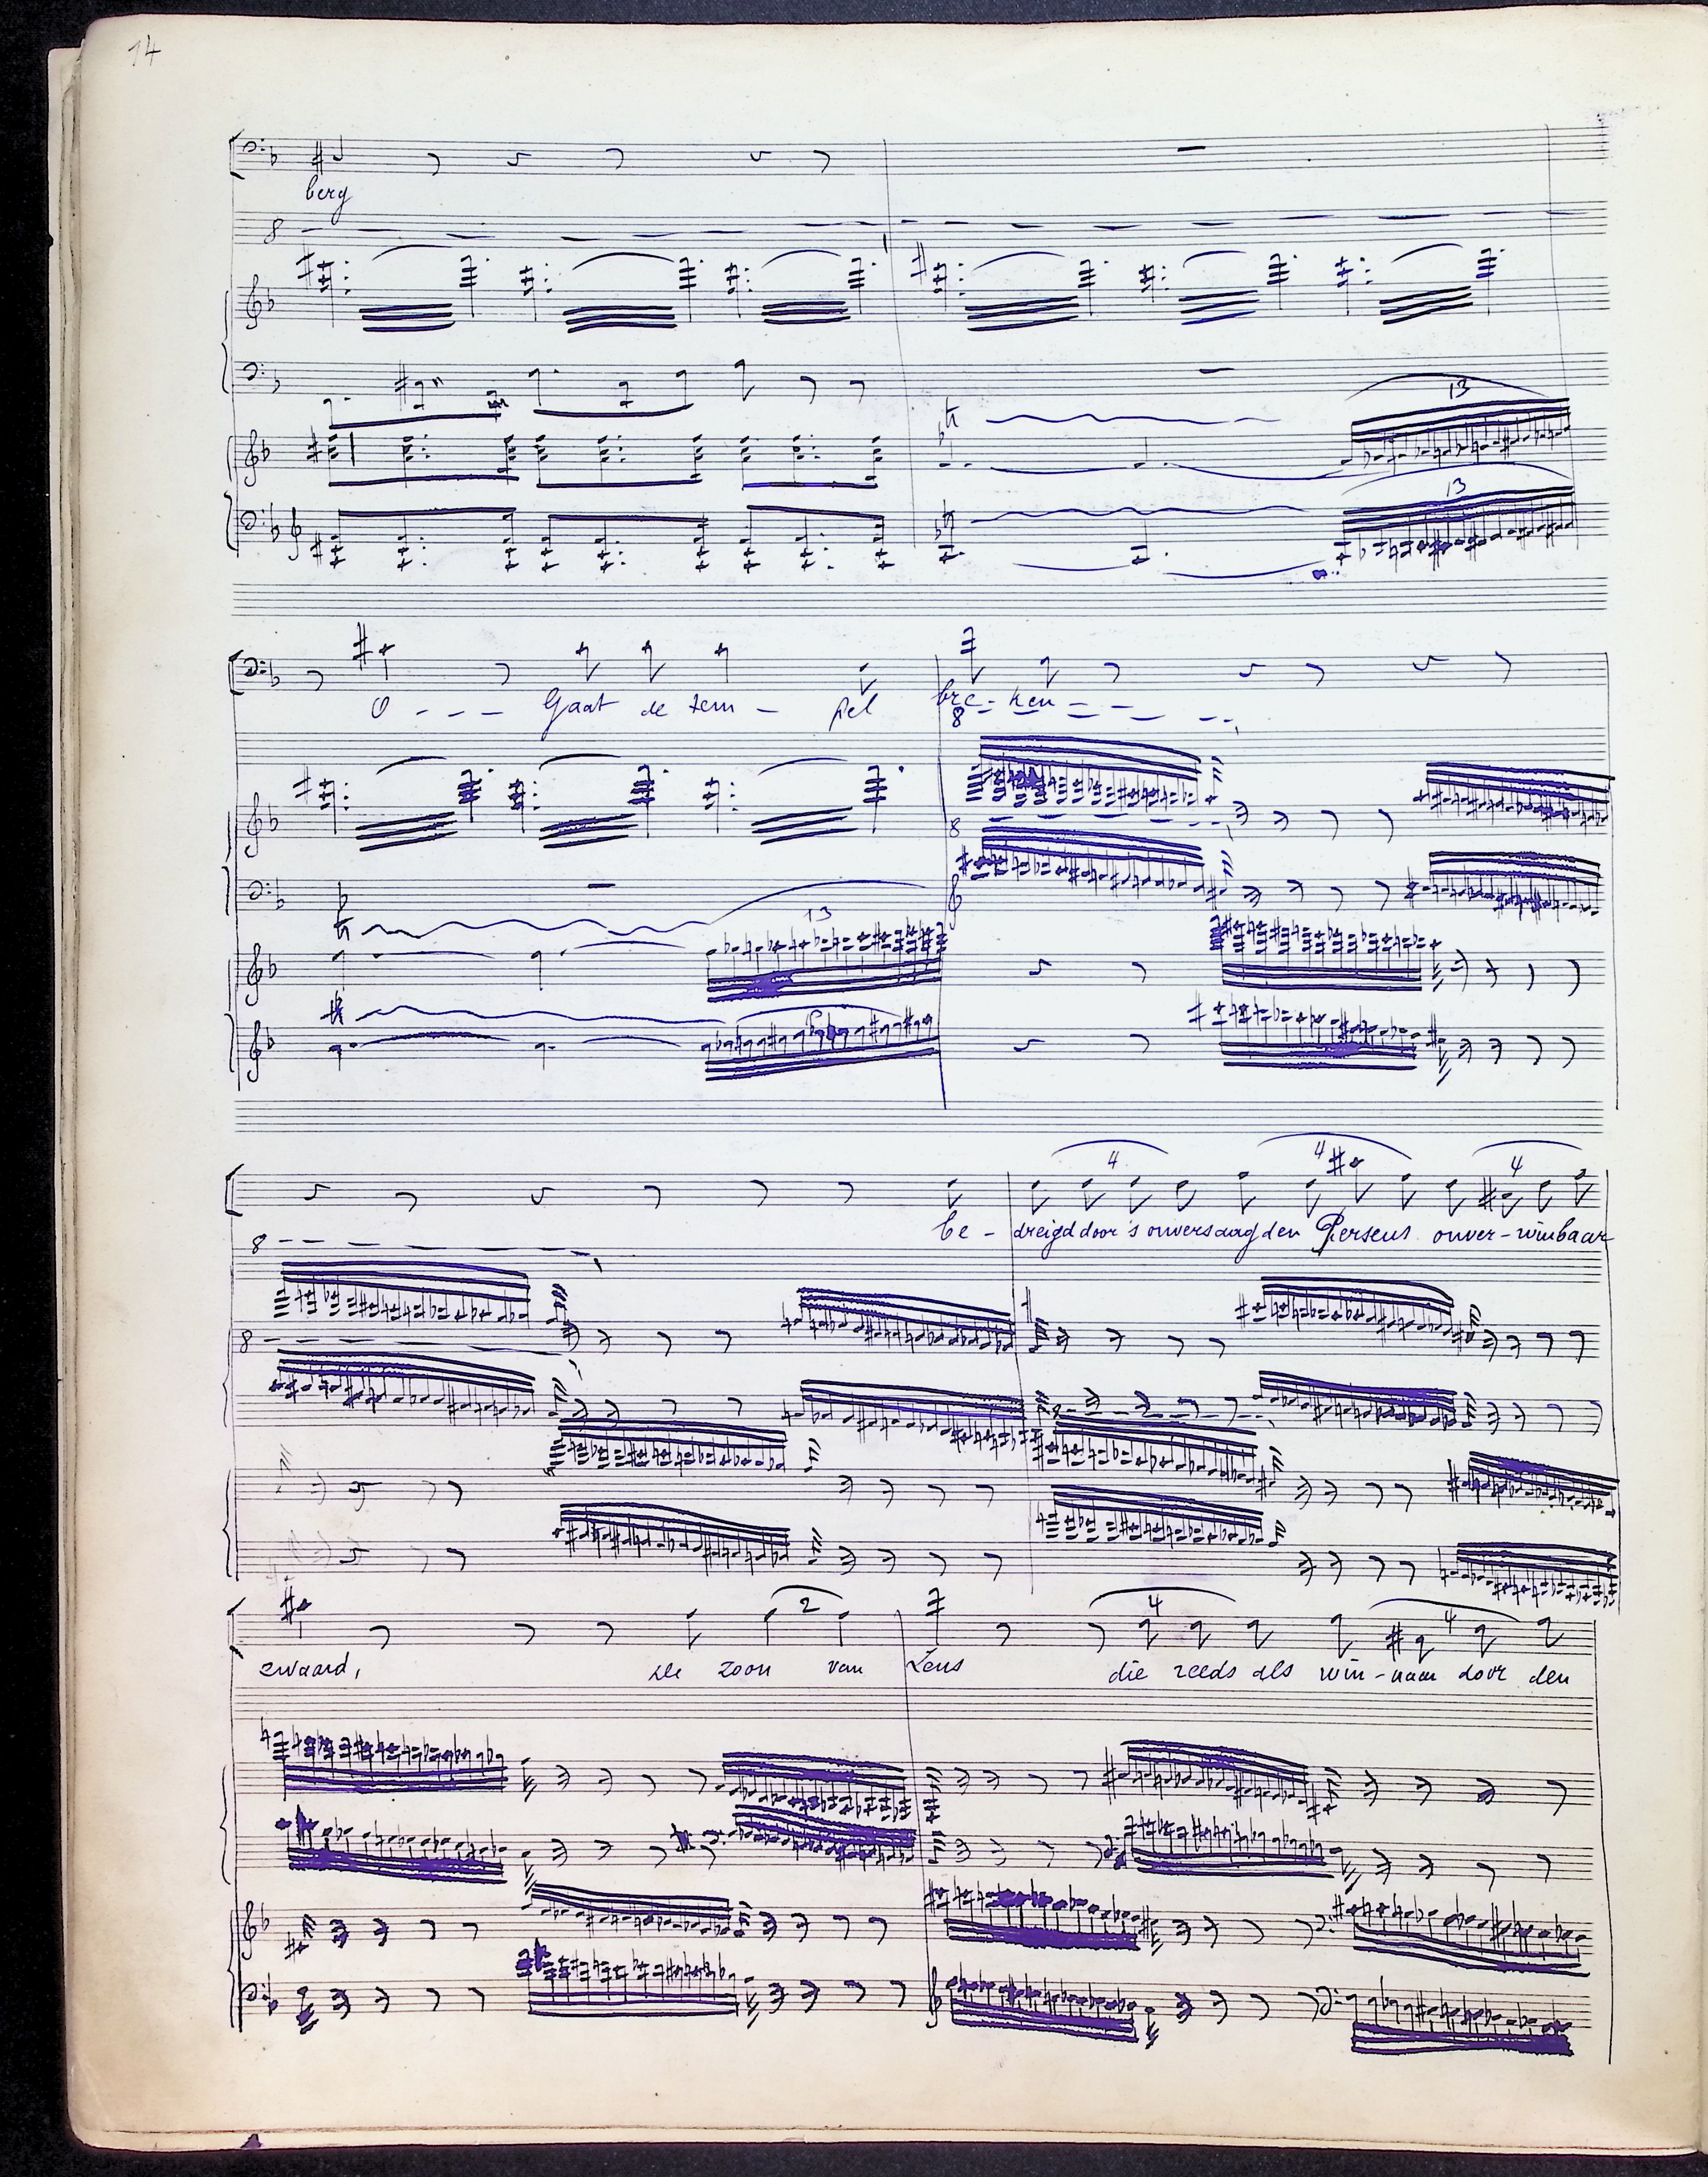 14
berg
8
13
13
O - - - Gaat de tem - pel bre - ken
8
8
13
4 4 4
be - dreigd door 's onversaagden Perseus onver - winbaar
8
8
2 4 4
zwaard, de zoon van Zeus die reeds als win - naar door den